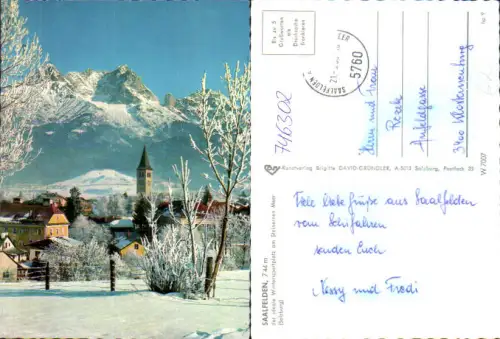 Bis zu 5
Grußworten
als
Drucksache
frankieren
5760
SAALFELDEN
746302
Herrn und Frau
Rezek
3400 Klosterneuburg
Kunstverlag Brigitte DAVID-GRÜNDLER, A-5013 Salzburg, Postfach 23
W 7007
SAALFELDEN, 744 m
der ideale Wintersportplatz am Steinernen Meer
(Salzburg)
Viele liebe Grüße aus Saalfelden
vom Schifahren
senden Euch
Nessy und Fredi